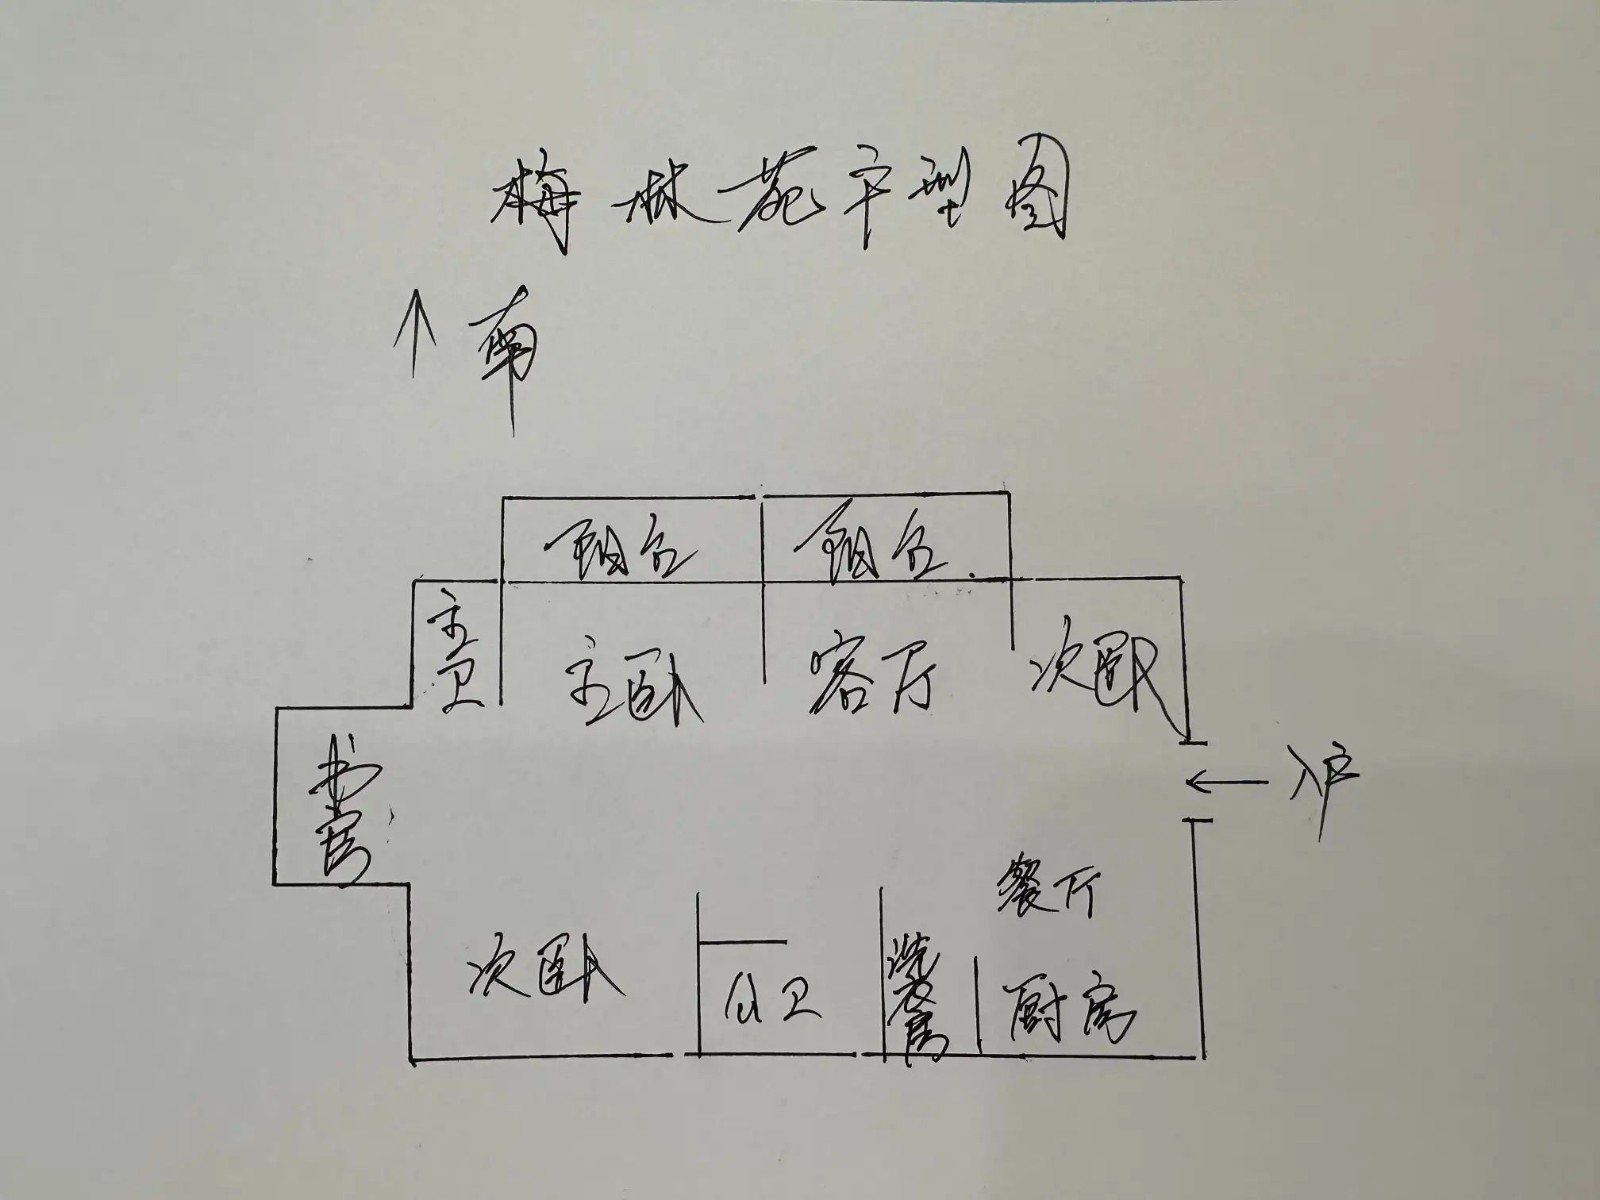 梅林苑户型图
南
阳台 阳台
主卫 主卧 客厅 次卧
书房 入户
餐厅
次卧 公卫 洗衣房 厨房